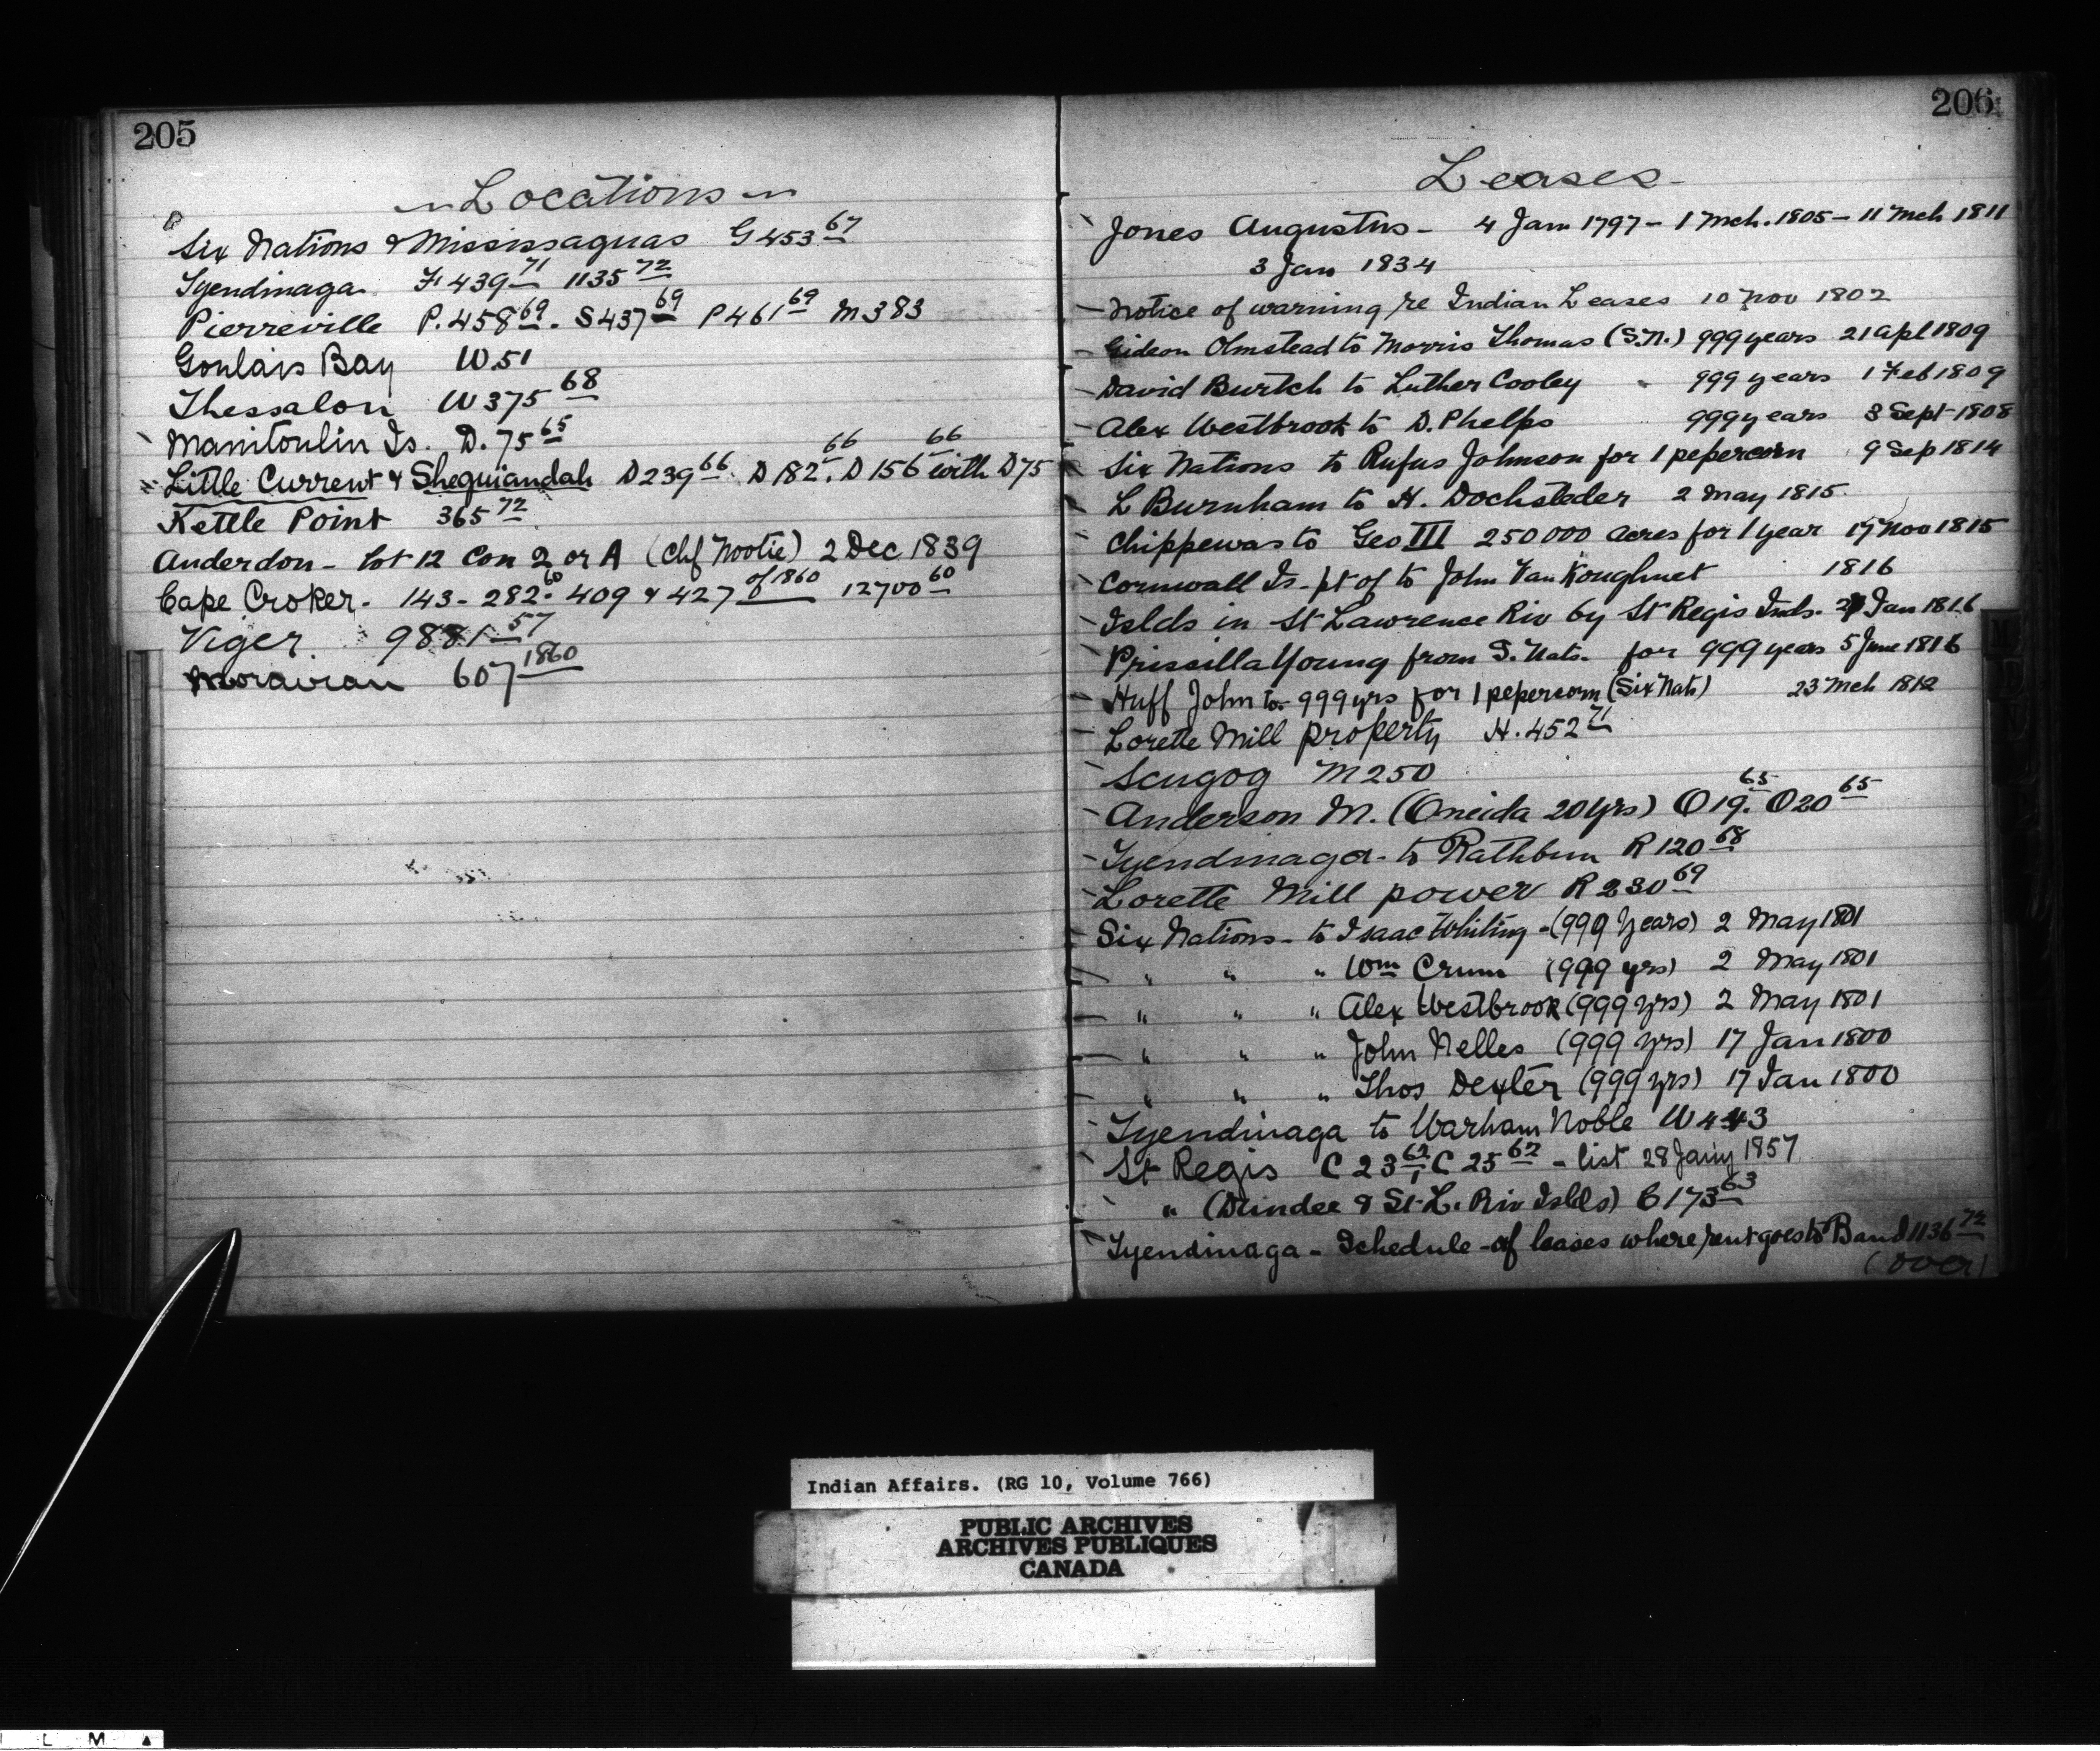 205
Locations
Six Nations & Mississaguas G453 67
Tyendinaga F439 71 1135 72
Pierreville P.458 69. S437 69 P461 69 M383
Goulais Bay W.51
Thessalon W375 68
Manitoulin Is. D.75 65
Little Current & Sheguiandah D239 66. D182 66. D156 66 with D75
Kettle Point 365 72
Anderdon - Lot 12 Con 2 or A (Chf Nootie) 2 Dec 1839
Cape Croker - 143 - 282. 60 409 & 427 of 1860 12700 60
Viger. 9881 57
Moravian 607 1860
206
Leases
Jones Augustus - 4 Jan 1797 - 1 Mch. 1805 - 11 Mch 1811
3 Jan 1834
Notice of warning re Indian Leases 10 Nov 1802
Gideon Olmstead to Morris Thomas (S.N.) 999 years 21 Apl 1809
David Burtch to Luther Cooley 999 years 1 Feb 1809
Alex Westbrook to D. Phelps 999 years 3 Sept 1808
Six Nations to Rufus Johnson for 1 pepercorn 9 Sep 1814
L Burnham to H. Dochsteder 2 May 1815.
Chippewas to Geo III 250000 acres for 1 year 17 Nov 1815
Cornwall Is - pt of to John Van Koughnet 1816
Islds in St Lawrence Riv by St Regis Inds. Jan 1816
Prissilla Young from S. Nats. for 999 years 5 June 1816
Huff John to - 999 yrs for 1 pepercorn (Six Nats) 23 Mch 1812
Lorette Mill property H.452 71
Scugog M250
Anderson M. (Oneida 20 yrs) O19. 65 O20 65
Tyendinaga - to Rathbun R120 68
Lorette Mill power R230 69
Six Nations - to Isaac Whiting - (999 years) 2 May 1801
" " " Wm Crum (999 yrs) 2 May 1801
" " " Alex Westbrook (999 yrs) 2 May 1801
" " " John Nelles (999 yrs) 17 Jan 1800
" " " Thos Dexter (999 yrs) 17 Jan 1800
Tyendinaga to Warham Noble W443
St Regis C23 62, C25 62 - list 28 Jany 1857
" (Dundee & St. L. Riv Islds) C173 63
Tyendinaga - Schedule - of leases where rent goes to Band 1136 72
(over)
Indian Affairs. (RG 10, Volume 766)
PUBLIC ARCHIVES
ARCHIVES PUBLIQUES
CANADA
L M